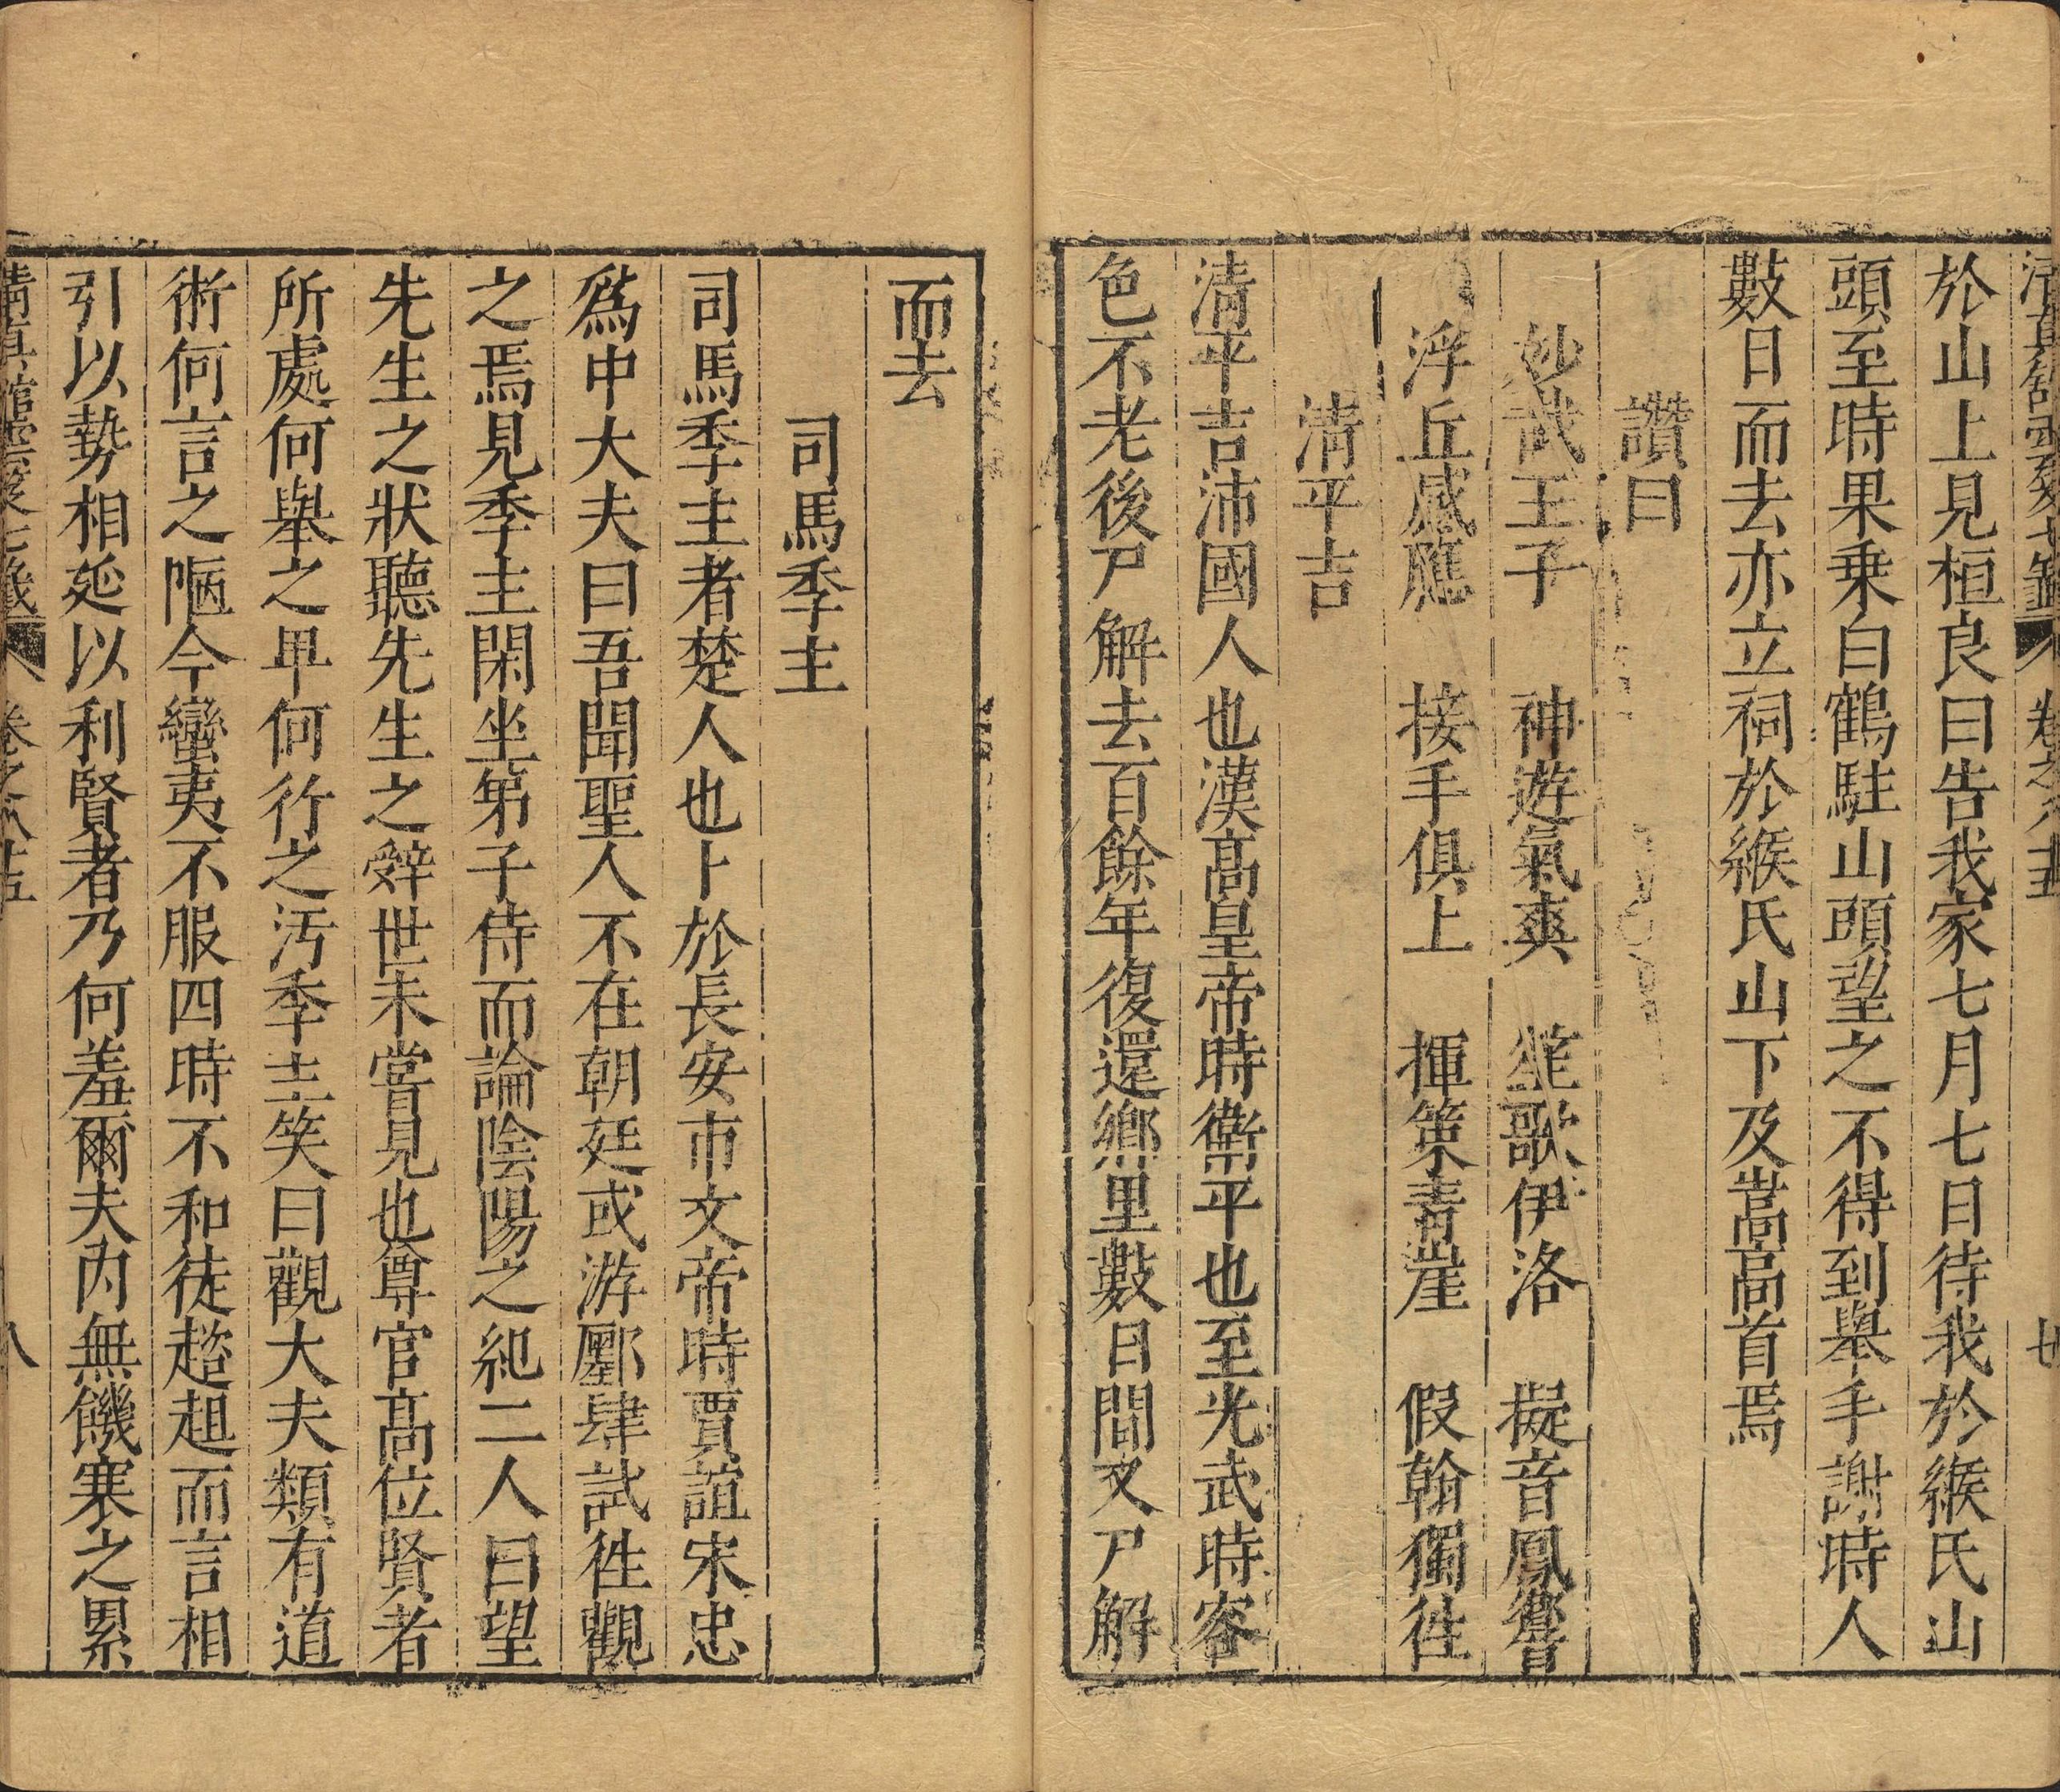 於山上見桓良曰告我家七月七日待我於緱氏山
頭至時果乗白鶴駐山頭望之不得到舉手謝時人
數日而去亦立祠於緱氏山下及嵩高首焉
讚曰
妙哉王子 神遊氣爽 笙歌伊洛 擬音鳳響
浮丘感應 接手俱上 揮策青崖 假翰獨徃
清平吉
清平吉沛國人也漢髙皇帝時衛平也至光武時容
色不老後尸解去百餘年復還鄉里數日間又尸解
而去
司馬季主
司馬季主者楚人也卜於長安市文帝時賈誼宋忠
爲中大夫曰吾聞聖人不在朝廷或游鄽肆試徃觀
之焉見季主閑坐第子侍而論陰陽之紀二人曰望
先生之狀聽先生之辤世未嘗見也尊官髙位賢者
所處何舉之卑何行之汚季主笑曰觀大夫類有道
術何言之陋今蠻夷不服四時不和徒趦趄而言相
引以勢相延以利賢者乃何羞爾夫内無饑寒之累
卷之八十五
八